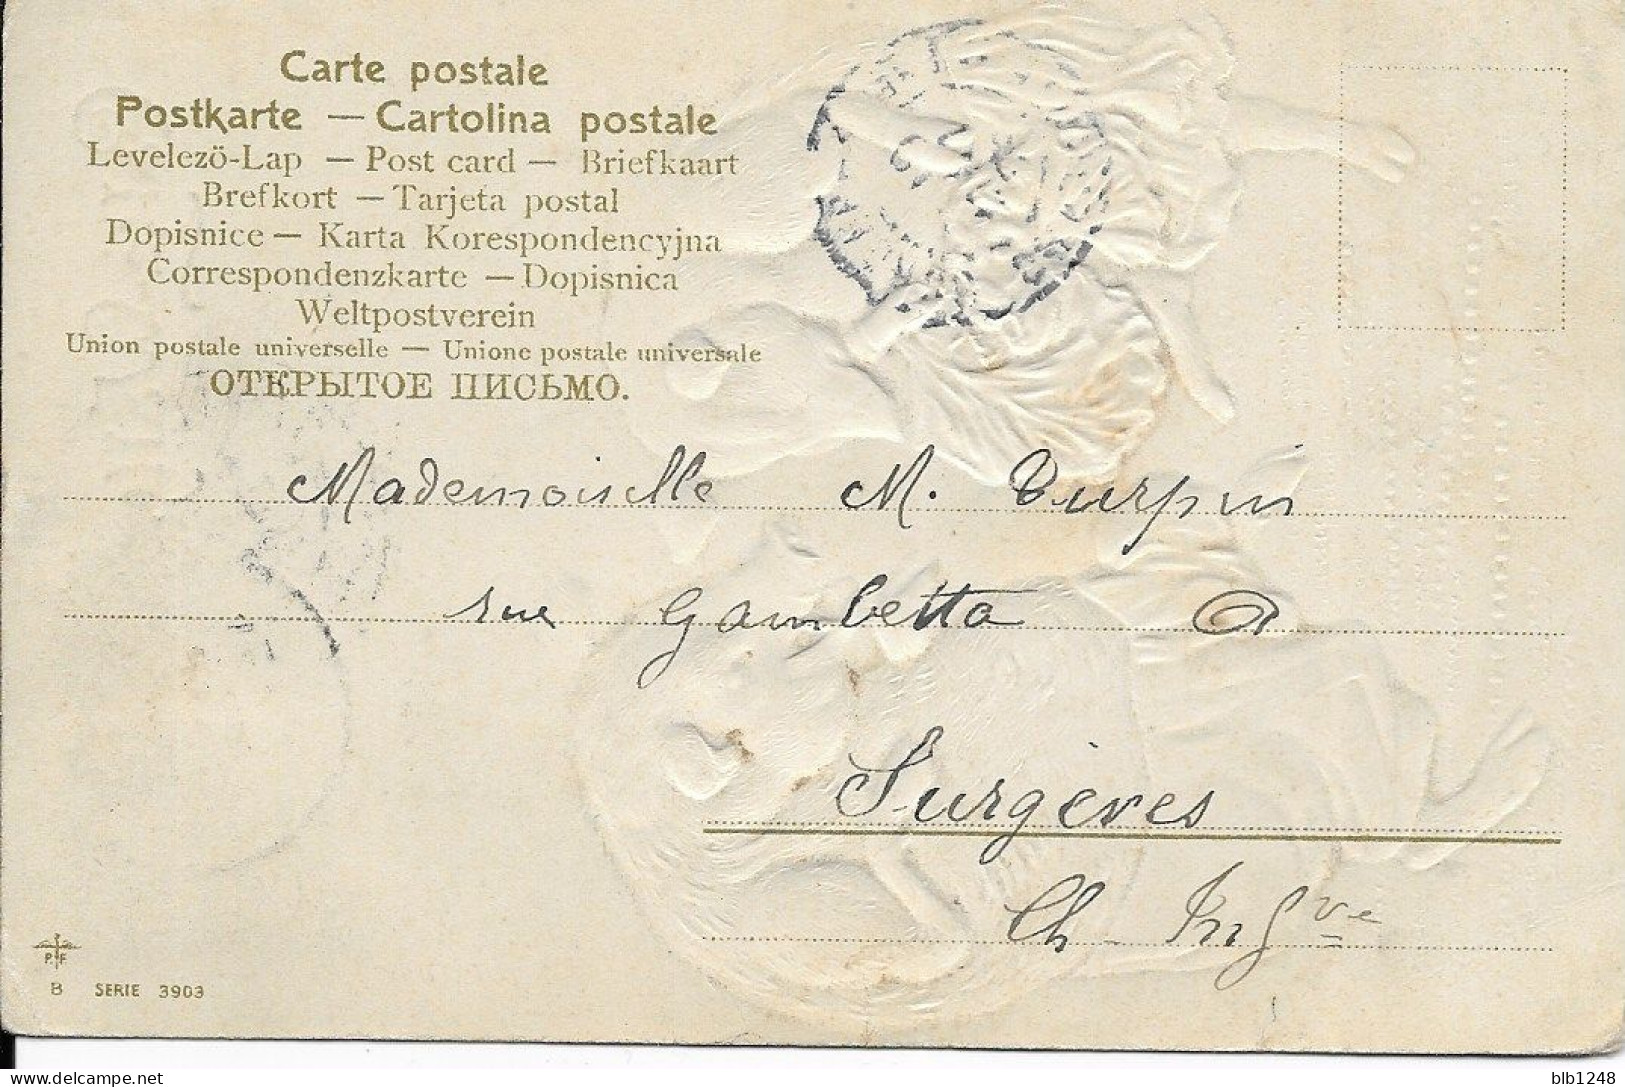 Carte postale
Postkarte — Cartolina postale
Levelezö-Lap — Post card — Briefkaart
Brefkort — Tarjeta postal
Dopisnice — Karta Korespondencyjna
Correspondenzkarte — Dopisnica
Weltpostverein
Union postale universelle — Unione postale universale
ОТКРЫТОЕ ПИСЬМО.
Mademoiselle M. Turpin
rue Gambetta
Surgères
Ch Infre
P. F
B SERIE 3903
delcampe.net
blb1248